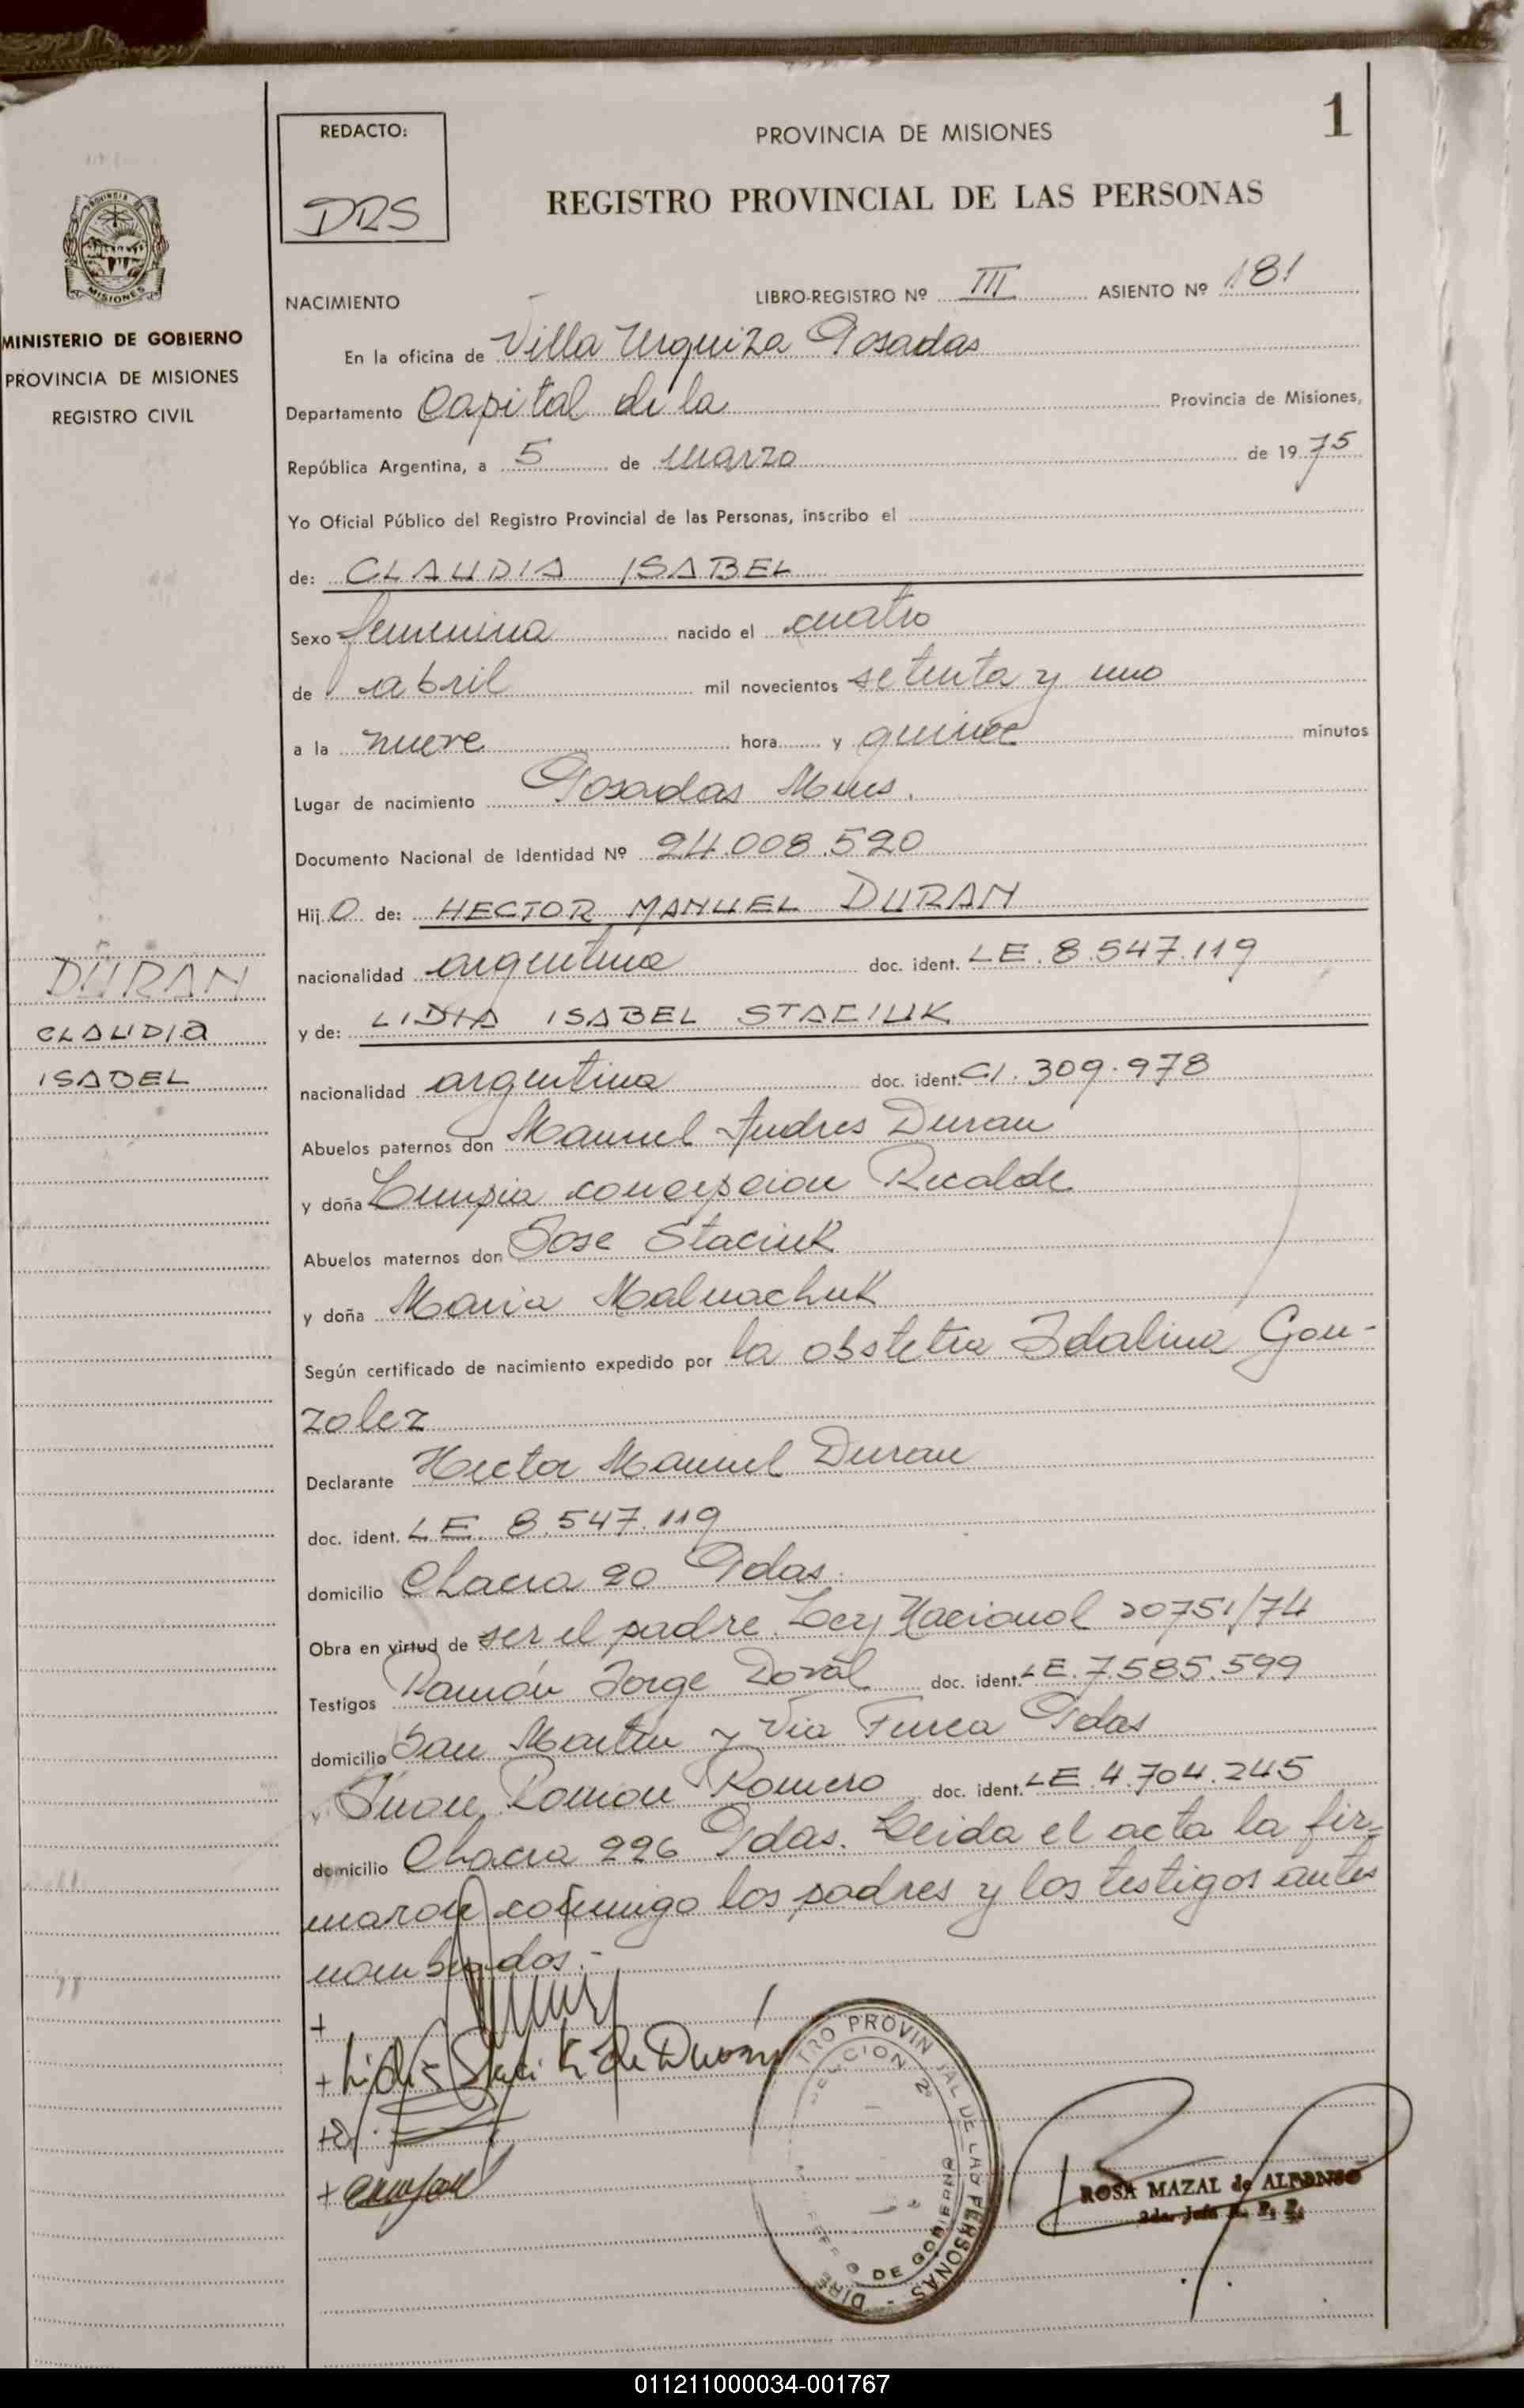 1
REDACTO:
DRS
PROVINCIA DE MISIONES
REGISTRO PROVINCIAL DE LAS PERSONAS
MISIONES
MINISTERIO DE GOBIERNO
PROVINCIA DE MISIONES
REGISTRO CIVIL
NACIMIENTO LIBRO-REGISTRO Nº III ASIENTO Nº 181
En la oficina de Villa Urquiza Posadas
Departamento Capital de la Provincia de Misiones,
República Argentina, a 5 de marzo de 1975
Yo Oficial Público del Registro Provincial de las Personas, inscribo el
de: CLAUDIA ISABEL
Sexo femenina nacido el cuatro
de abril mil novecientos setenta y uno
a la nueve hora y quince minutos
Lugar de nacimiento Posadas Mnes.
Documento Nacional de Identidad Nº 24.008.520
Hij O de: HECTOR MANUEL DURAN
nacionalidad argentina doc. ident. LE. 8.547.119
DURAN
CLAUDIA
ISABEL
y de: LIDIA ISABEL STACIUK
nacionalidad argentina doc. ident. CI. 309.978
Abuelos paternos don Manuel Andres Duran
y doña concepcion Recalde
Abuelos maternos don Jose Staciuk
y doña Maria Malnachuk
Según certificado de nacimiento expedido por la obstetra Idalina Gon-
zalez
Declarante Hector Manuel Duran
doc. ident. LE. 8.547.119
domicilio Chacra 20 Pdas.
Obra en virtud de ser el padre. Ley Nacional 20751/74
Testigos Ramón Jorge Doval doc. ident. LE. 7.585.599
domicilio San Martin y Via Ferrea Pdas
y Juan Ramon Romero doc. ident. LE. 4.704.245
domicilio Chacra 226 Pdas. Leida el acta la fir=
maron conmigo los padres y los testigos antes
nombrados.-
+
+ Lidia Staciuk de Duran
+
+
TRO PROVIN IAL DE LAS PERSONAS - DIRE
SECCION 2ª
DE GOBIERNO
ROSA MAZAL de ALFONSO
2da. Jefa R. P. P.
011211000034-001767